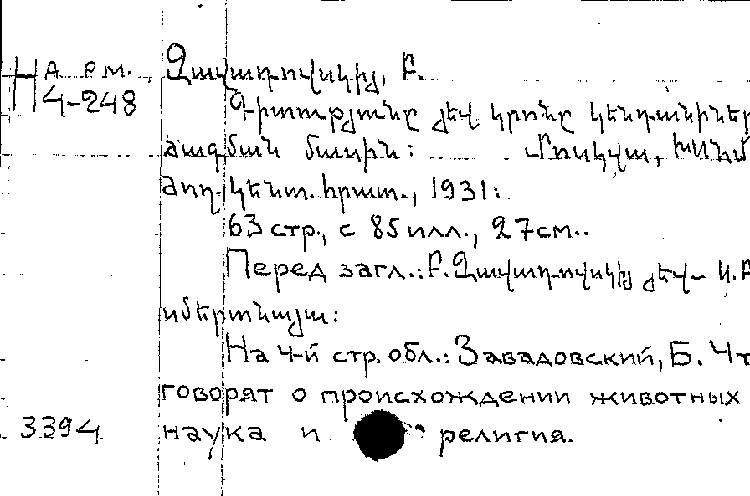 На рм.
4-248
Զավադովսկիյ, Բ.
Գիտությունը յեվ կրոնը կենդանիներ
ծագման մասին։ Մոսկվա, ԽՍՀՄ
ժող. կենտ. հրատ., 1931։
63 стр., с 85 илл., 27 см..
Перед загл.: Բ. Զավադովսկիյ յեվ
На 4-й стр. обл.: Завадовский, Б. Чт
говорят о происхождении животных
3394 наука и религия.